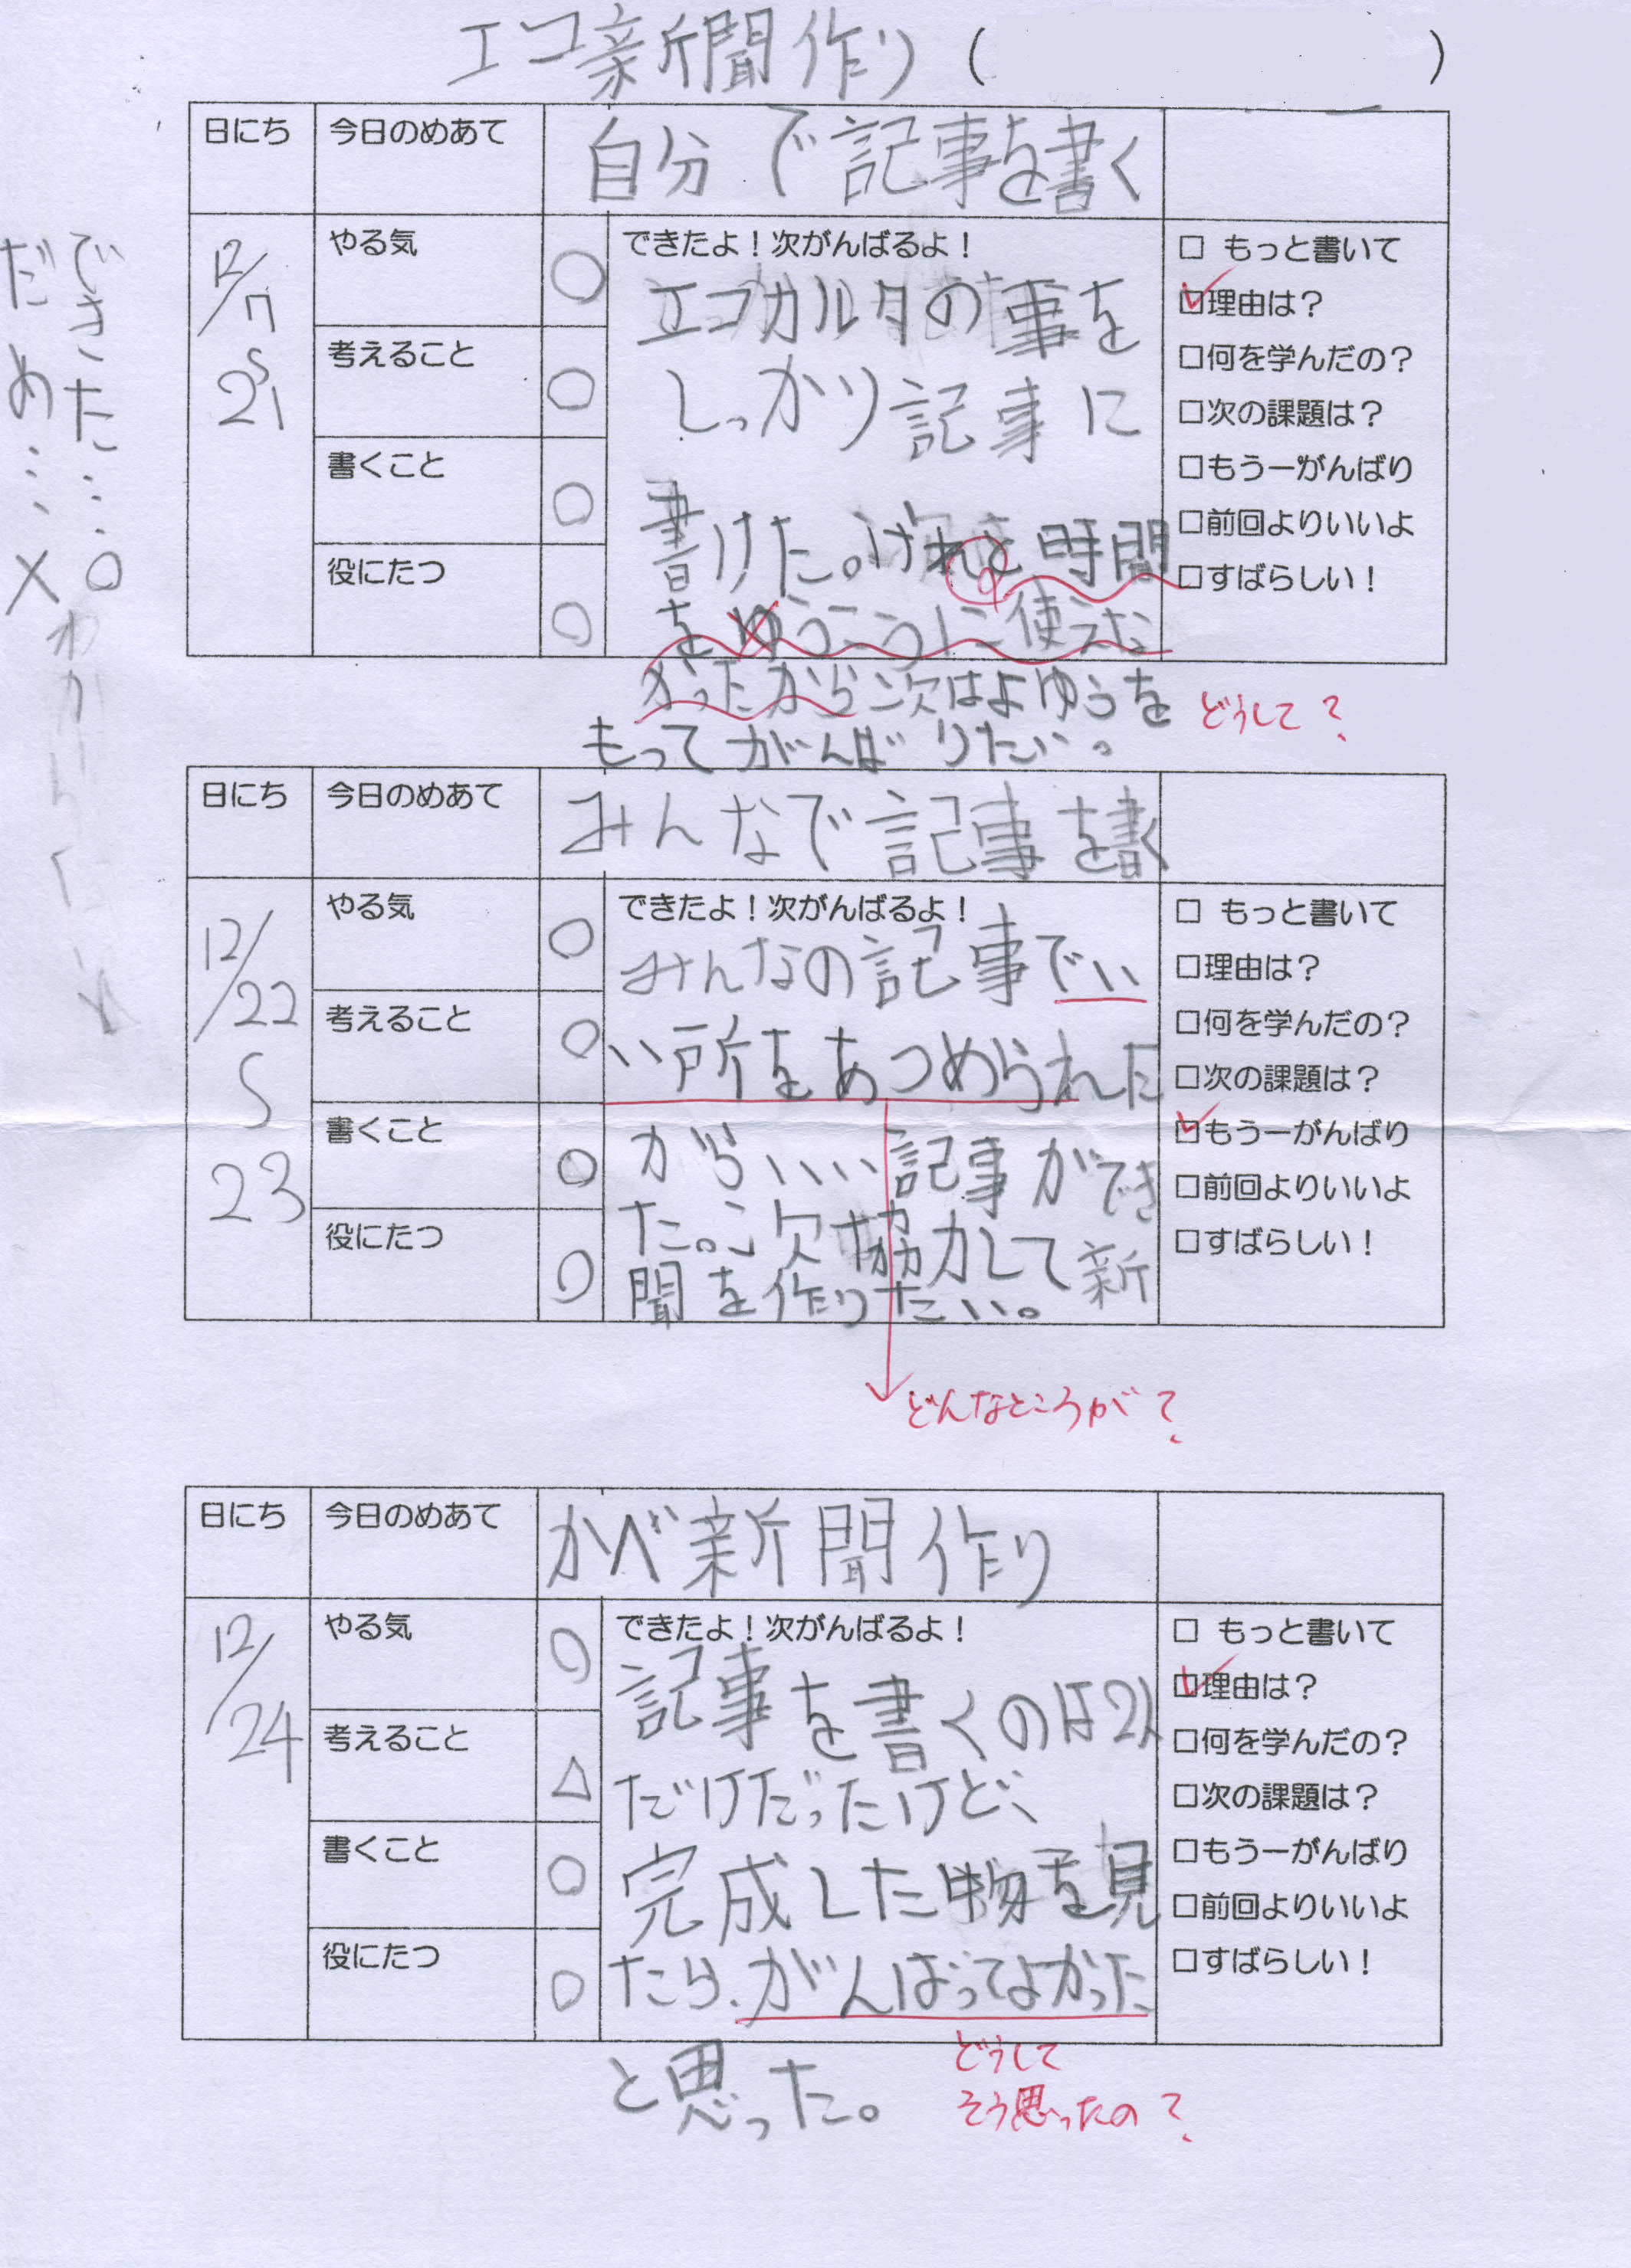 エコ新聞作り（　　　）
日にち 今日のめあて 自分で記事を書く
12/17
〜
21
やる気 ○
考えること ○
書くこと ○
役にたつ ○
できたよ！次がんばるよ！
エコカルタの事を
しっかり記事に
書けた。けれど時間
をゆうこうに使えな
かったから次はよゆうを
もってがんばりたい。
どうして？
□ もっと書いて
☑理由は？
□何を学んだの？
□次の課題は？
□もう一がんばり
□前回よりいいよ
□すばらしい！
できた…○
だめ…×
日にち 今日のめあて みんなで記事を書く
12/22
〜
23
やる気 ○
考えること ○
書くこと ○
役にたつ ○
できたよ！次がんばるよ！
みんなの記事でい
い所をあつめられた
からいい記事ができ
た。次協力して新
聞を作りたい。
どんなところが？
□ もっと書いて
□理由は？
□何を学んだの？
□次の課題は？
☑もう一がんばり
□前回よりいいよ
□すばらしい！
日にち 今日のめあて かべ新聞作り
12/24
やる気 ○
考えること △
書くこと ○
役にたつ ○
できたよ！次がんばるよ！
記事を書くのは2人
だけだったけど、
完成した物を見
たら、がんばってよかった
と思った。
どうして
そう思ったの？
□ もっと書いて
☑理由は？
□何を学んだの？
□次の課題は？
□もう一がんばり
□前回よりいいよ
□すばらしい！